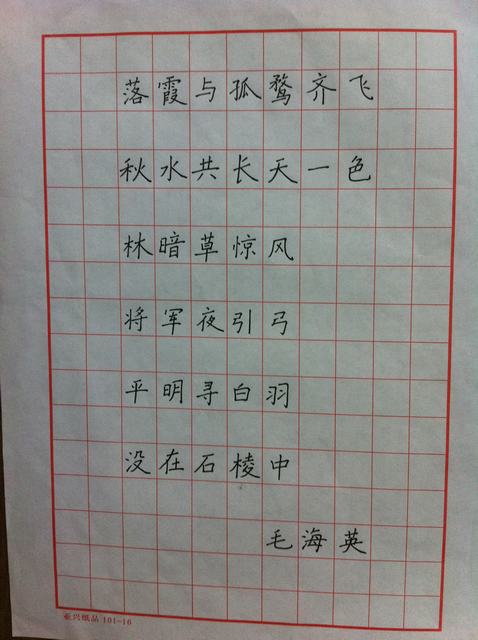 落霞与孤鹜齐飞
秋水共长天一色
林暗草惊风
将军夜引弓
平明寻白羽
没在石棱中
毛海英
亚兴纸品 101-16